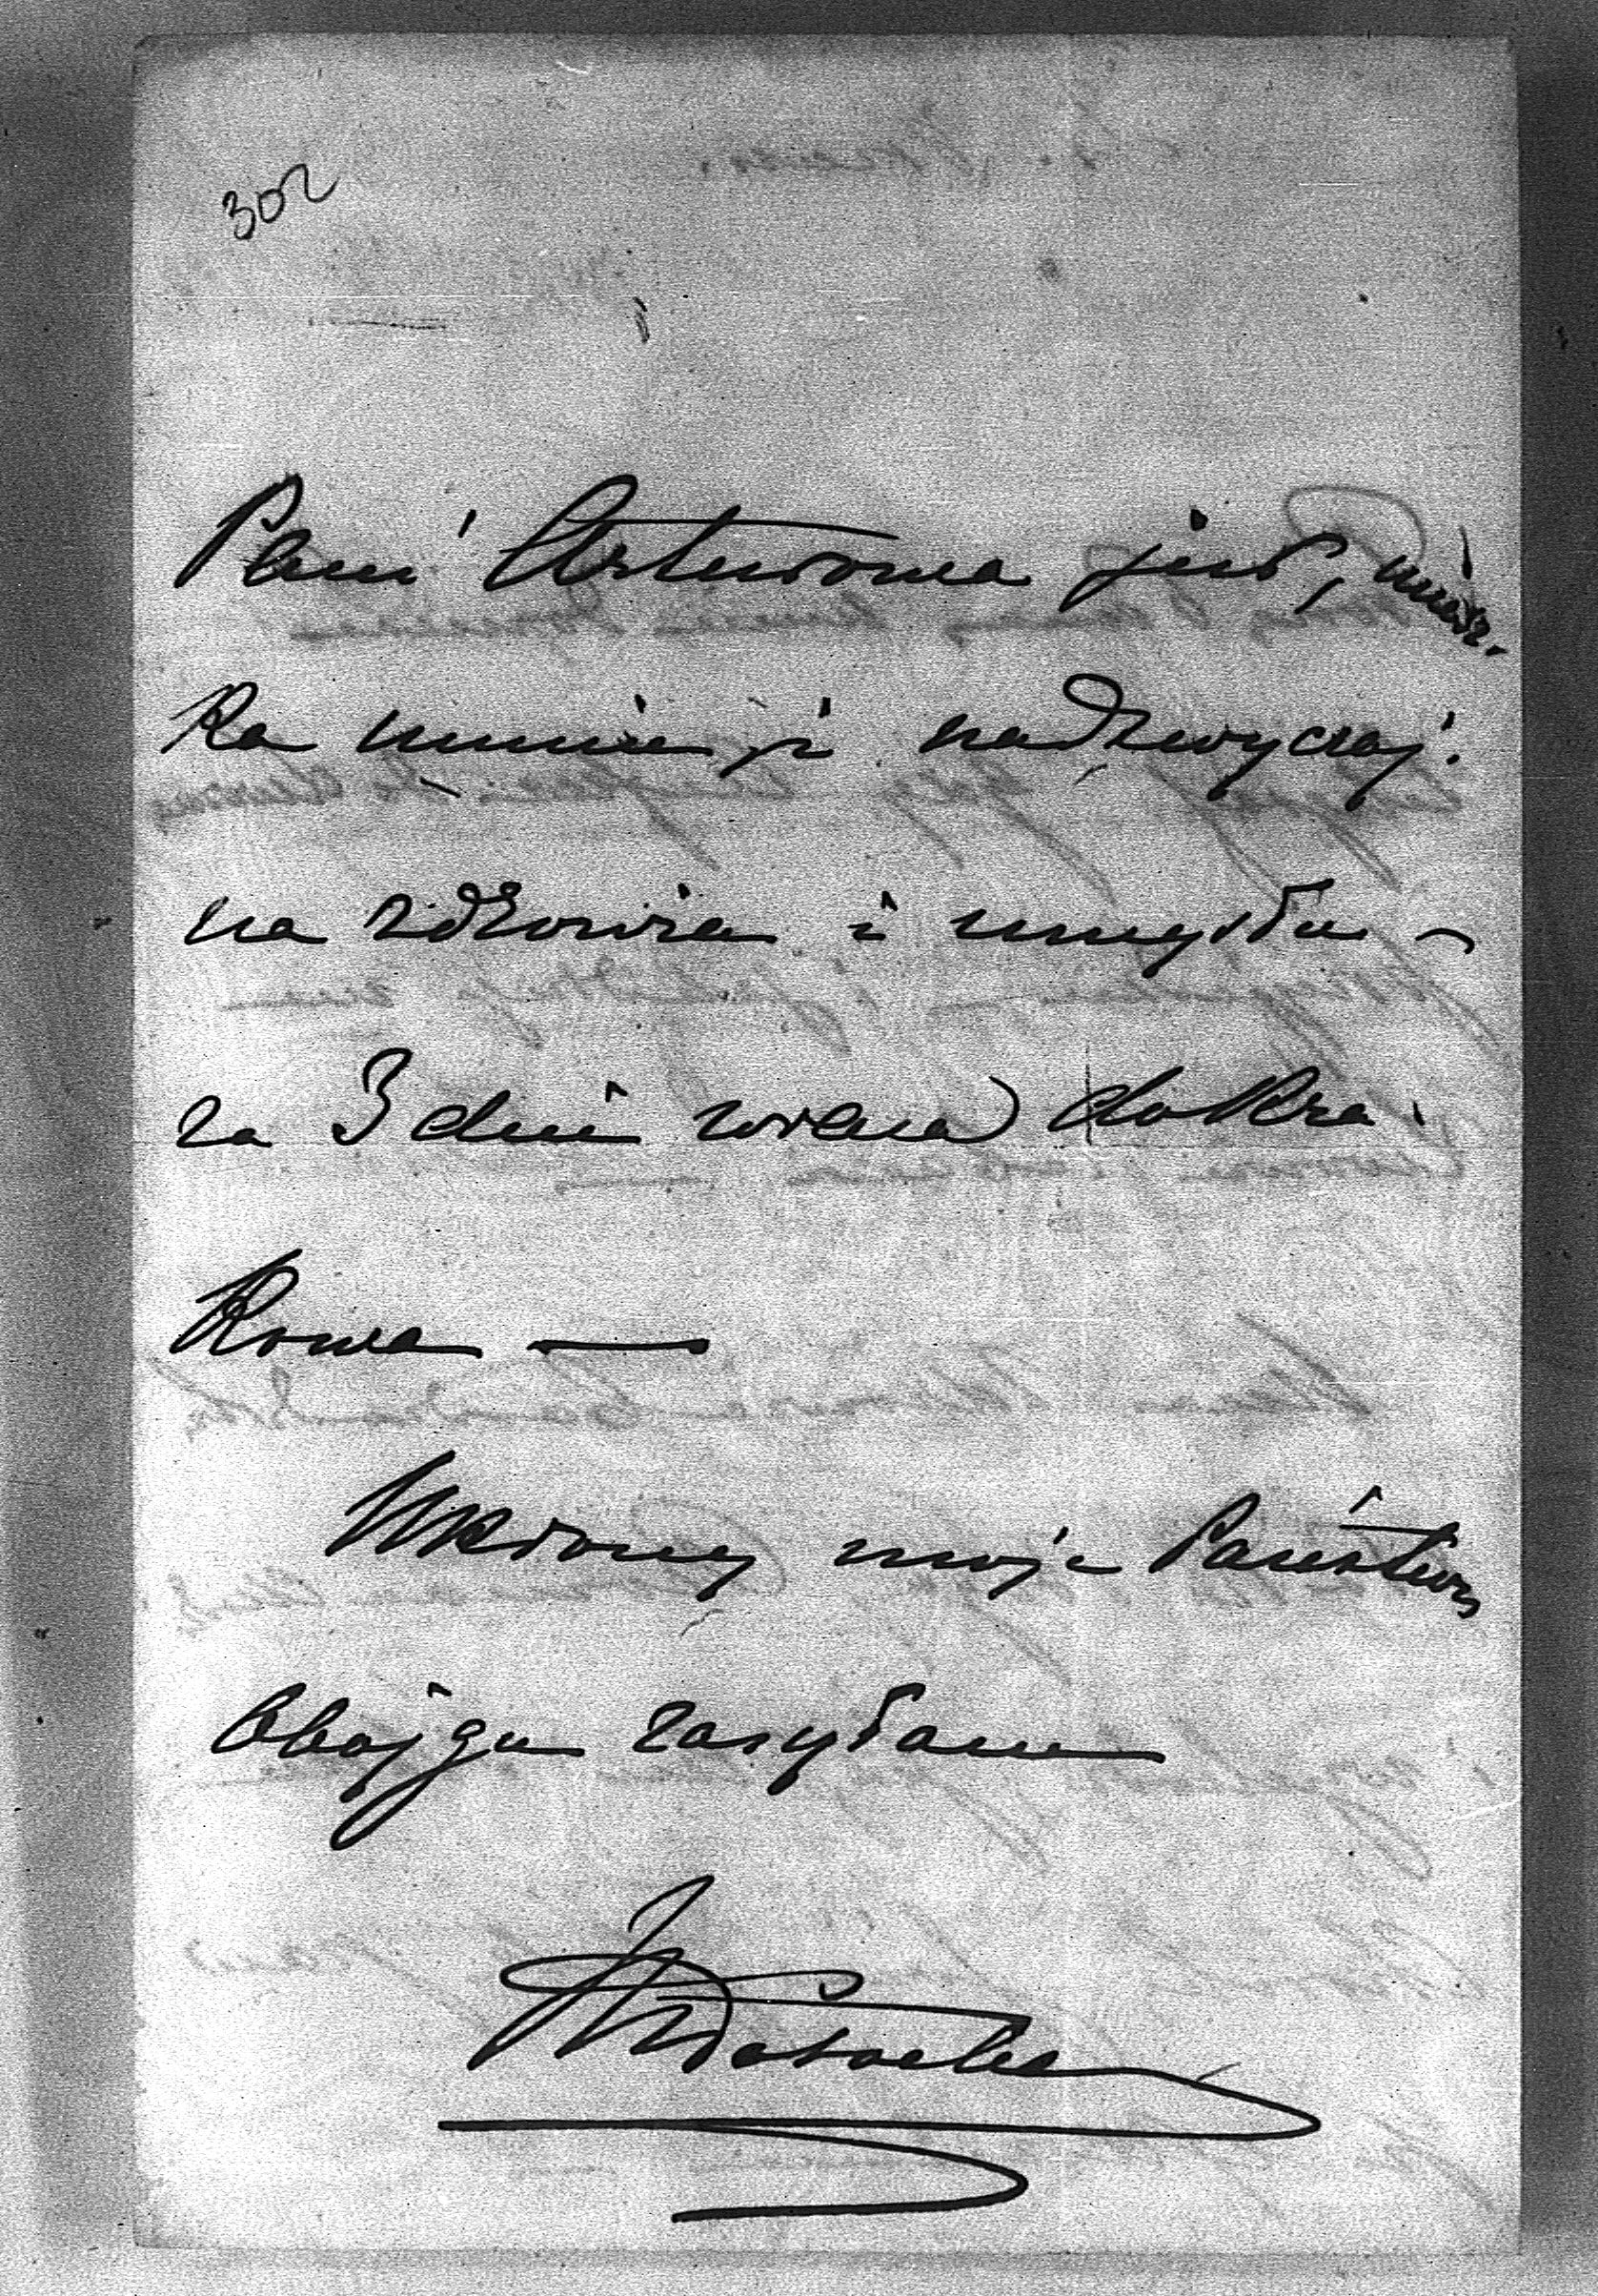 302
Pani Arturowa jest, miesz.
ka u mnie, i nadzwyczaj.
na zdrowie i umysłu –
za 3 dni wraca do Kra.
kowa —
Ukłony moje Państwu
Obojgu zasyłam